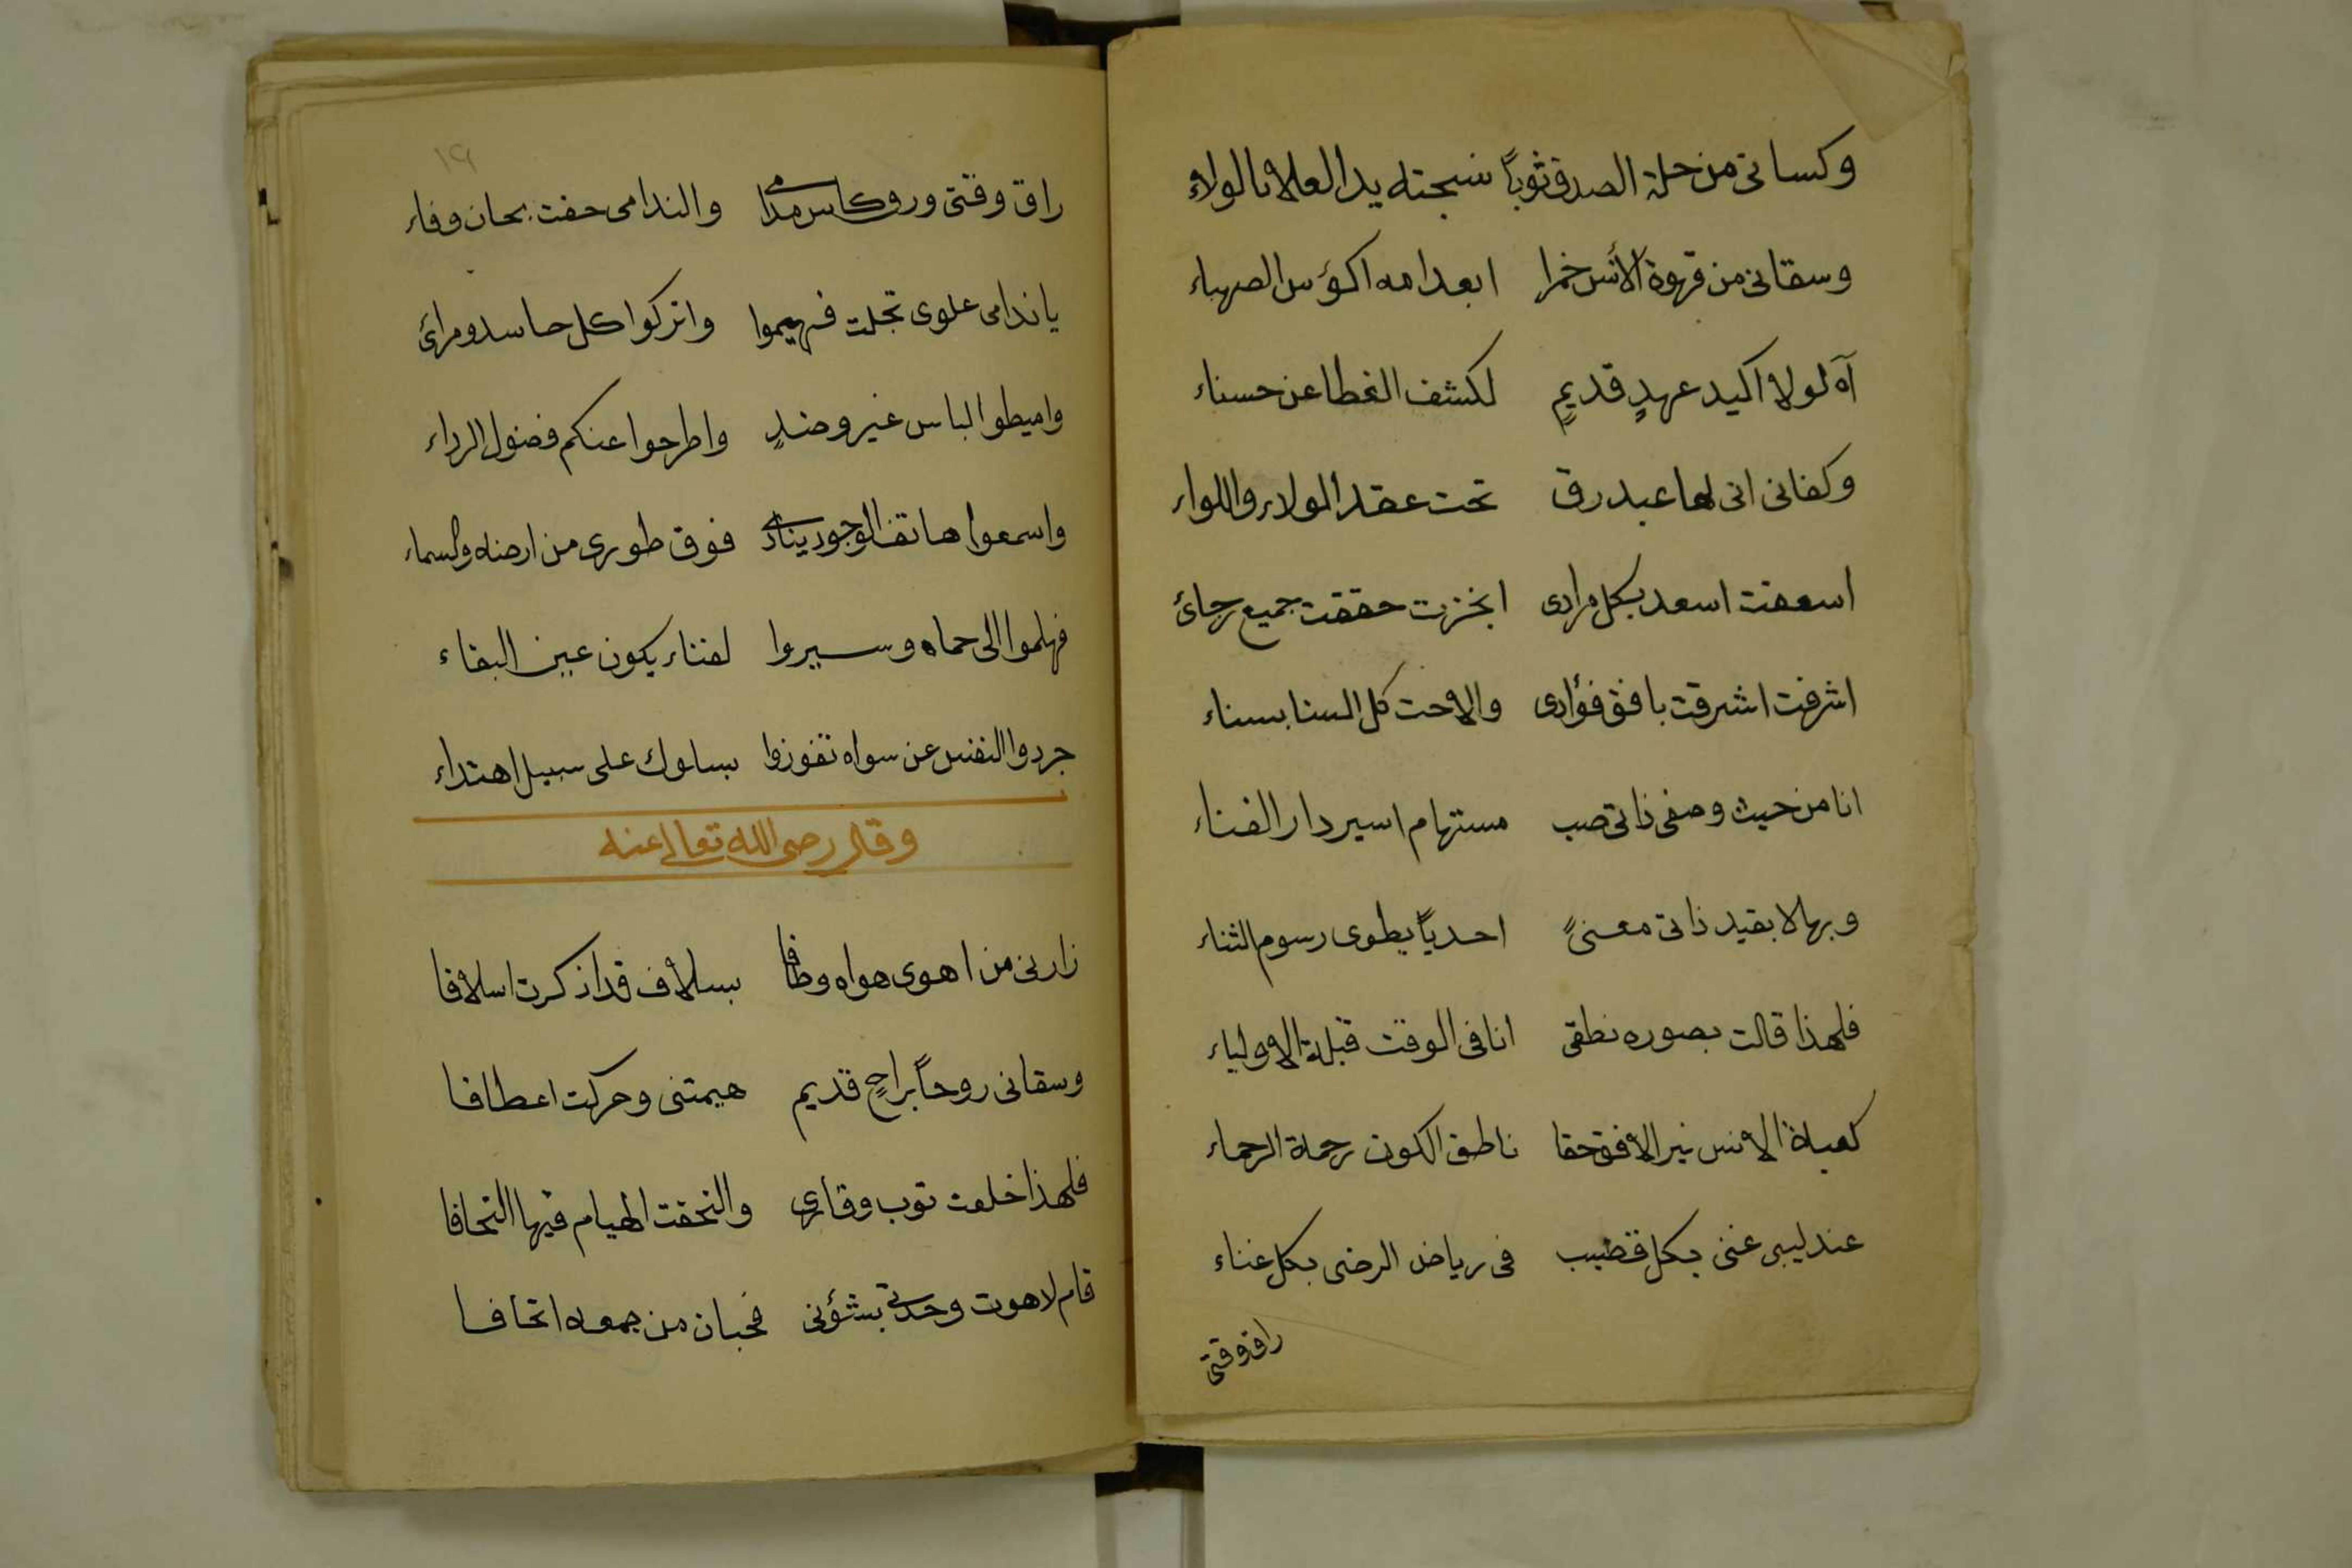 وكسانى من حلة الصدق ثوباً نسجته يد العلا بالولاء
وسقانى من قهوة الأنس خمرا ابعدا مه اكؤس الصهباء
آه لولا اكيد عهدٍ قديمٍ لكشف الغطا عن حسناء
وكفانى انى لها عبد رق تحت عقد الولاء واللواء
اسعفت اسعد بكل مرادى انجزت حققت جميع رجائ
اشرفت اشرقت بافق فؤادى والاحت كل السنا بسناء
انا من حيث وصفى ذاتى صب مستهام اسير دار الفناء
وبها لا بقيد ذاتى معنىً احدياً يطوى رسوم الثناء
فلهذا قالت بصوره نطقى انا فى الوقت قبلة الاولياء
كعبة الانس نير الافق حقا ناطق الكون رحمة الرحماء
عندليبى غنى بكل قضيب فى رياض الرضى بكل غناء
راق وقتى
١٩
راق وقتى وروق كاس مدامى والندامى حفت بحان وفاء
يا ندامى علوى تجلت فهيموا واتركوا كل حاسد ومرائ
واميطوا لباس غير وضدٍ واطرحوا عنكم فضول الرداء
واسمعوا هاتف الوجود ينادى فوق طورى من ارضه والسماء
فهلموا الى حماه وسيروا لفناء يكون عين البقاء
جردوا النفس عن سواه تفوزوا بسلوك على سبيل اهتداء
وقال رضى الله تعالى عنه
زارنى من اهوى هواه وطافا بسلاف قد اذكرت اسلافا
وسقانى روحاً براحٍ قديم هيمتنى وحركت اعطافا
فلهذا خلعت ثوب وقارى والتحفت الهيام فيها التحافا
قام لاهوت وحدتى بشؤنى فحبان من جمعه اتحافا